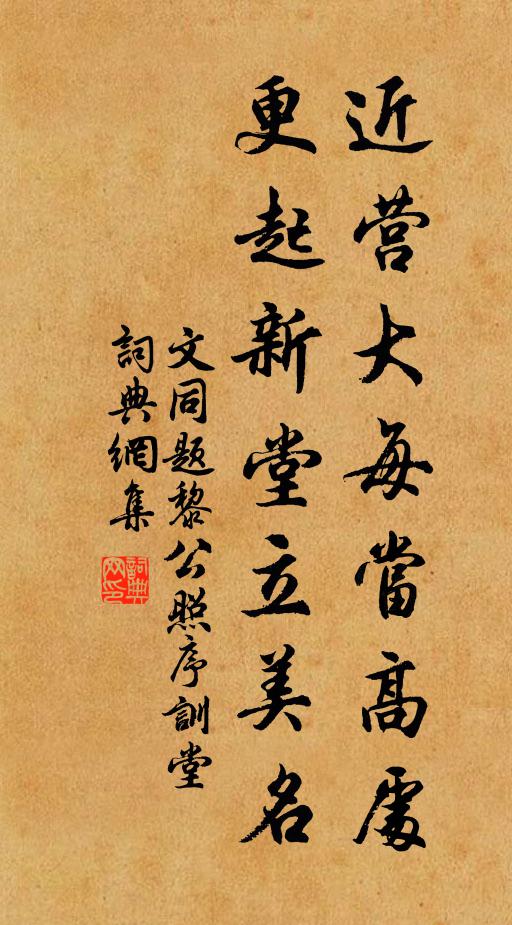 近营大每當高處
更起新堂立美名
文同題黎公照序訓堂
詞典網集
詞典网印